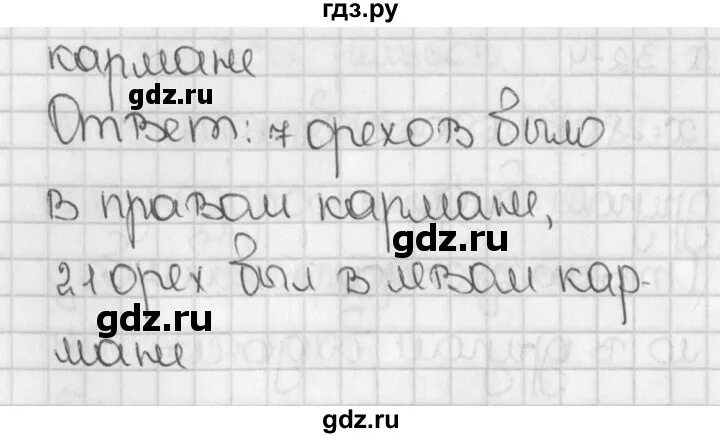 гдз.ру
кармане
gdz.ru
Ответ: 7 орехов было
в правом кармане,
gdz.ru
21 орех был в левом кар-
gdz.ru
мане
gdz.ru